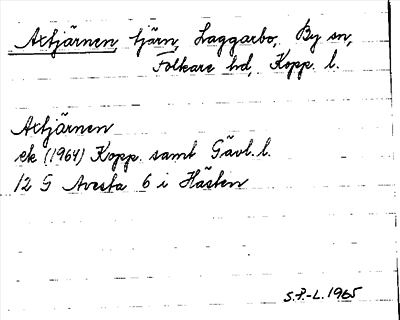 Axtjärnen, tjärn, Laggarbo, By sn,
Folkare hd, Kopp. l.
Axtjärnen
ek (1964) Kopp. samt Gävl. l.
12 G Avesta 6 i Hästen
S.P.-L. 1965